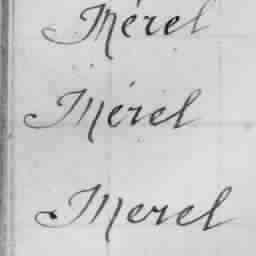 Mérel
Mérel
Merel